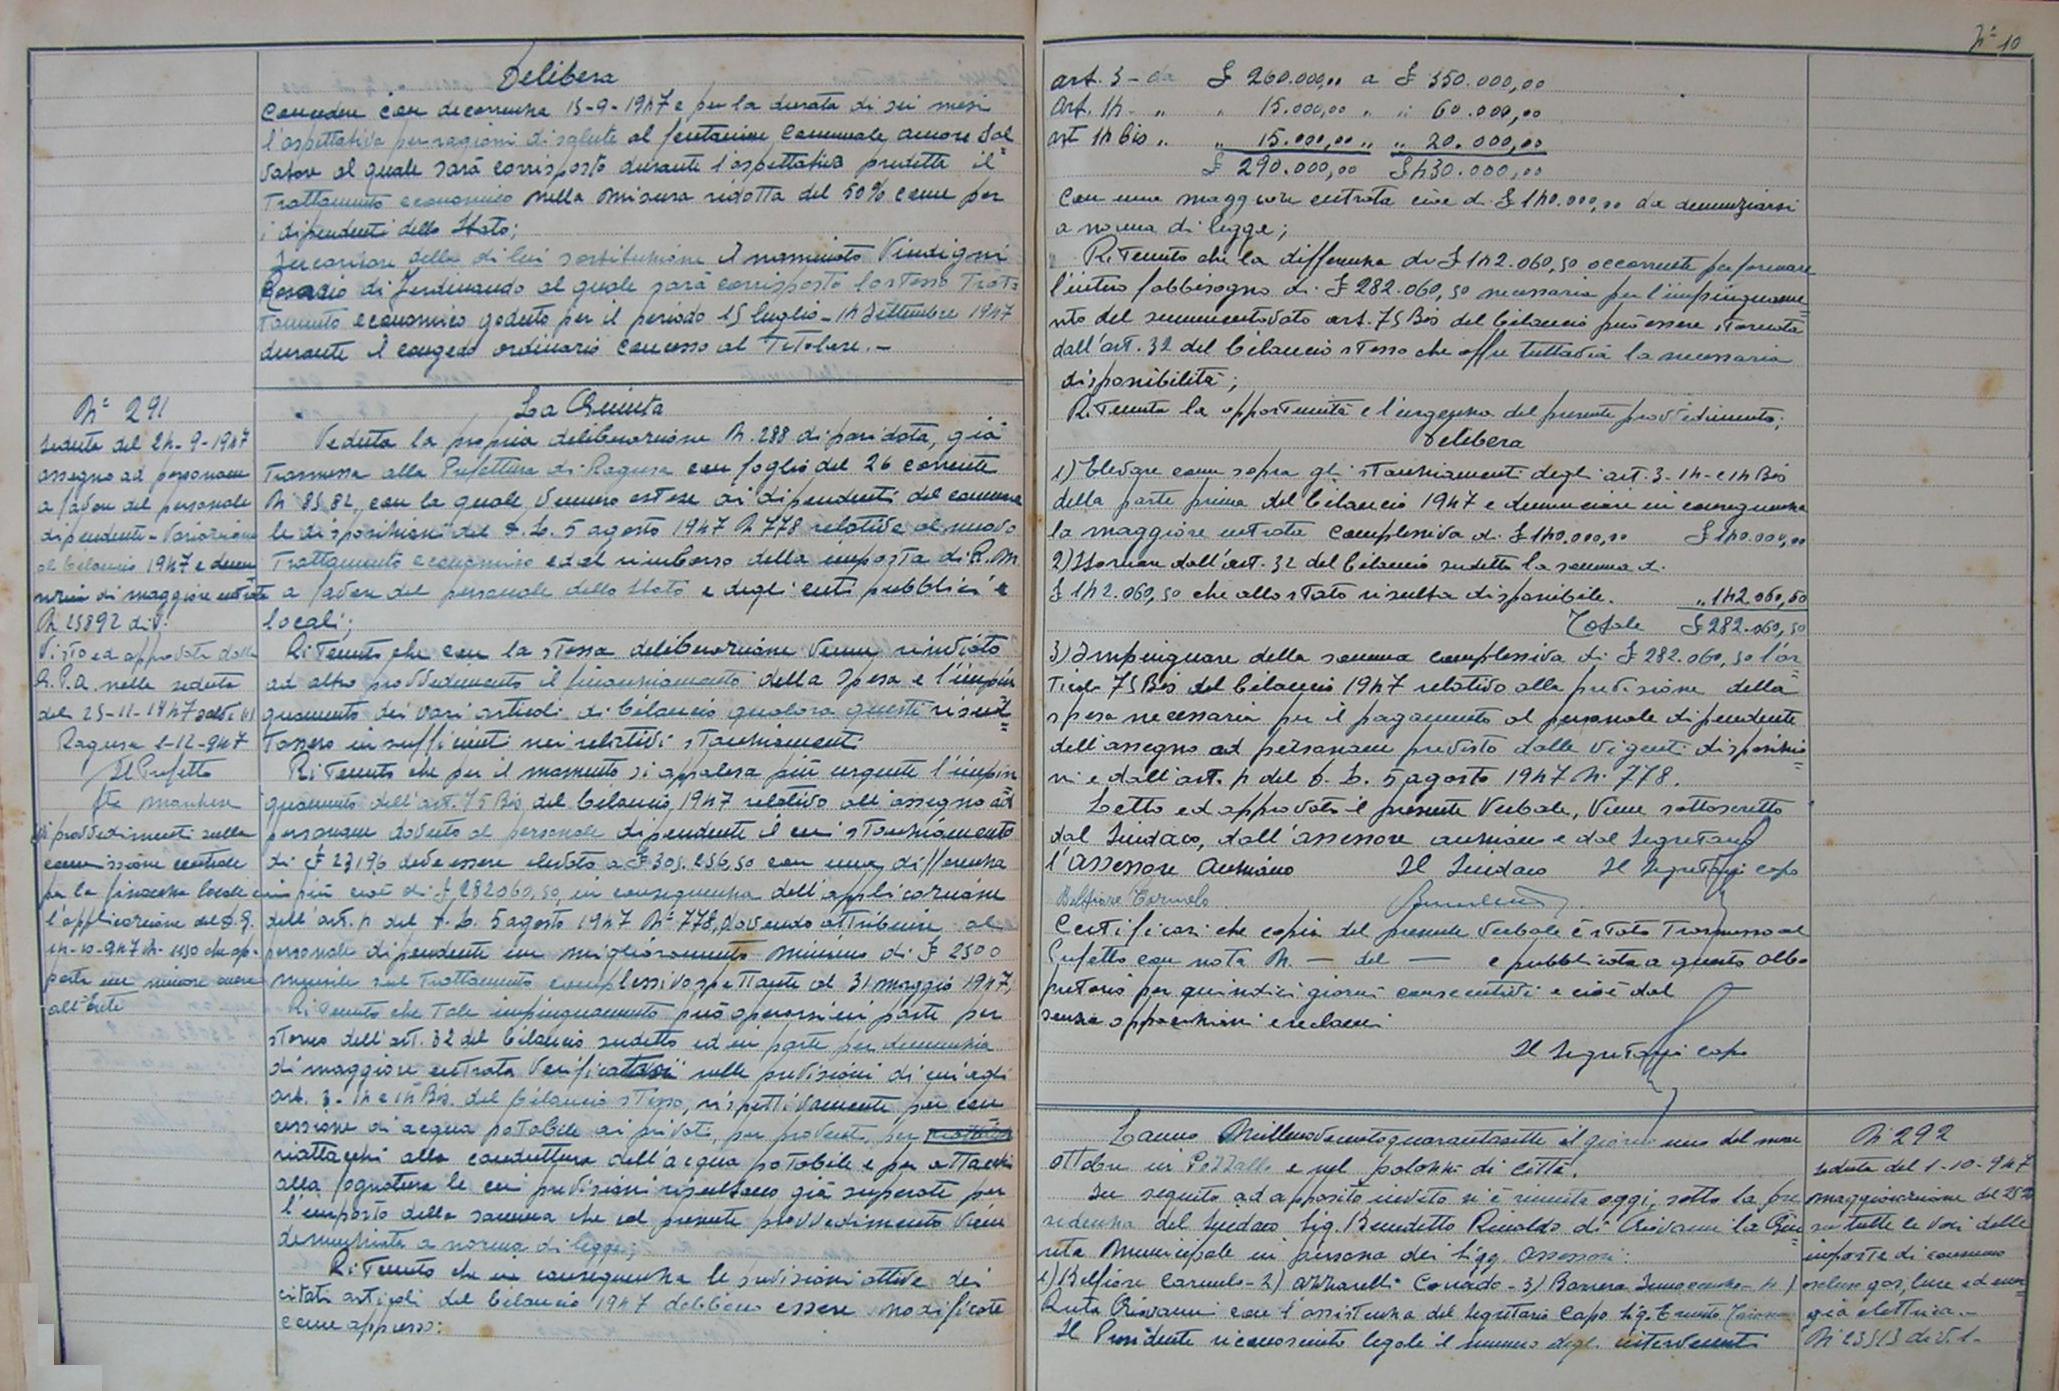 Delibera
Concedere con decorrenza 15-9-1947 e per la durata di sei mesi
l'aspettativa per ragioni di salute al fontaniere Comunale Amore Sal=
vatore al quale sarà corrisposto durante l'aspettativa predetta il
trattamento economico nella misura ridotta del 50% come per
i dipendenti dello Stato;
della di lui sostituzione il nominato Vindigni
di Ferdinando al quale sarà corrisposto lo stesso trat=
tamento economico goduto per il periodo 15 luglio-14 Settembre 1947
durante il congedo ordinario concesso al Titolare.-
N° 291
Seduta del 24-9-1947
assegno ad personam
a favore del personale
dipendente-Variazione
al bilancio 1947 e denun
nzia di maggiore entrata
N 25892 div.
Visto ed approvato dalla
G.P.A. nella seduta
del 25-11-1947 salvi
Ragusa 1-12-947
Il Prefetto
fto
i provvedimenti della
commissione centrale
per la finanza locale
l'applicazione del D.
14-10-947 N. che ap-
porta un minore onere
all'Ente
La Giunta
Veduta la propria deliberazione N. 288 di pari data, già
trasmessa alla Prefettura di Ragusa con foglio del 26 corrente
N 8582, con la quale vennero estese ai dipendenti del comune
le disposizioni del D.L. 5 agosto 1947 N 778 relative al nuovo
trattamento economico ed al rimborso della imposta di R.M.
a favore del personale dello Stato e degli enti pubblici e
locali;
Ritenuto che con la stessa deliberazione venne rinviato
ad altro provvedimento il finanziamento della spesa e l'impin
guamento dei vari articoli di bilancio qualora questi risul=
tassero insufficienti nei relativi stanziamenti
Ritenuto che per il momento si appalesa più urgente l'impin
guamento dell'art. 75 Bis del bilancio 1947 relativo all'assegno ad
personam dovuto al personale dipendente il cui stanziamento
di £ 23196 deve essere elevato a £ 305.256,50 con una differenza
in più cioè di £ 282060,50, in conseguenza dell'applicazione
dell'art. 4 del D.L. 5 agosto 1947 N° 778, dovendo attribuire al
personale dipendente un miglioramento minimo di £ 2500
mensile sul trattamento complessivo spettante al 31 maggio 1947;
Ritenuto che tale impinguamento può operarsi in parte per
storno dell'art. 32 del bilancio sudetto ed in parte per denunzia
di maggiore entrata verificatasi nelle previsioni di cui agli
art. 3-14 e 14 Bis. del bilancio stesso, rispettivamente per con
cessione di acqua potabile ai privati, per proventi per
riattacchi alla conduttura dell'acqua potabile e per attacchi
alla fognatura le cui previsioni risultano già superate per
l'importo della somma che col presente provvedimento viene
denunziata a norma di legge;
Ritenuto che in conseguenza le previsioni attive dei
citati articoli del bilancio 1947 debbono essere modificate
come appresso:
N° 10
art. 3 - da £ 260.000,00 a £ 350.000,00
art. 14 - „ „ 15.000,00 „ „ 60.000,00
art 14 bis „ „ 15.000,00 „ „ 20.000,00
£ 290.000,00 £ 430.000,00
con una maggiore entrata cioè di £ 140.000,00 da denunziarsi
a norma di legge;
Ritenuto che la differenza di £ 142.060,50 occorrente per formare
l'intero fabbisogno di £ 282.060,50 necessaria per l'impinguame=
nto del summentovato art. 75 Bis del bilancio può essere stornata
dall'art. 32 del bilancio stesso che offre tuttavia la necessaria
disponibilità;
Ritenuta la opportunità e l'urgenza del presente provvedimento;
Delibera
1) Elevare come sopra gli stanziamenti degli art. 3-14 e 14 Bis
della parte prima del bilancio 1947 e denunciare in conseguenza
la maggiore entrata complessiva di £ 140.000,00 £ 140.000,00
2) Stornare dall'art. 32 del bilancio sudetto la somma di
£ 142.060,50 che allo stato risulta disponibile. „ 142.060,50
Totale £ 282.060,50
3) Impinguare della somma complessiva di £ 282.060,50 l'ar=
ticolo 75 Bis del bilancio 1947 relativo alla previsione della
spesa necessaria per il pagamento al personale dipendente
dell'assegno ad personam previsto dalle vigenti disposizio=
ni e dall'art. 4 del D.L. 5 agosto 1947 N. 778.
Letto ed approvato il presente verbale, viene sottoscritto
dal Sindaco, dall'assessore anziano e dal Segretario
l'Assessore Anziano Il Sindaco Il Segretario capo
Belfiore Carmelo
Certificasi che copia del presente verbale è stato trasmesso al
Prefetto con nota N. — del — e pubblicata a questo albo
pretorio per quindici giorni consecutivi e cioè dal
senza opposizioni e reclami
Il Segretario capo
L'anno Millenovecentoquarantasette il giorno uno del mese
ottobre in Pozzallo e nel palazzo di città.
In seguito ad apposito invito si è riunita oggi, sotto la pre
sidenza del Sindaco Sig. Benedetto Rinaldo di Giovanni la Giu
nta Municipale in persona dei Sigg. Assessori:
1) Belfiore Carmelo - 2) Azzarelli Corrado - 3) Barrera Innocenzo - 4)
Ruta Giovanni con l'assistenza del Segretario Capo Sig.
Il Presidente riconosciuto legale il numero degli intervenuti
N 292
Seduta del 1-10-947
maggiorazione del 25%
su tutte le voci delle
imposte di consumo
escluso gas, luce ed ener
gia elettrica.-
N 23513 div. 1-